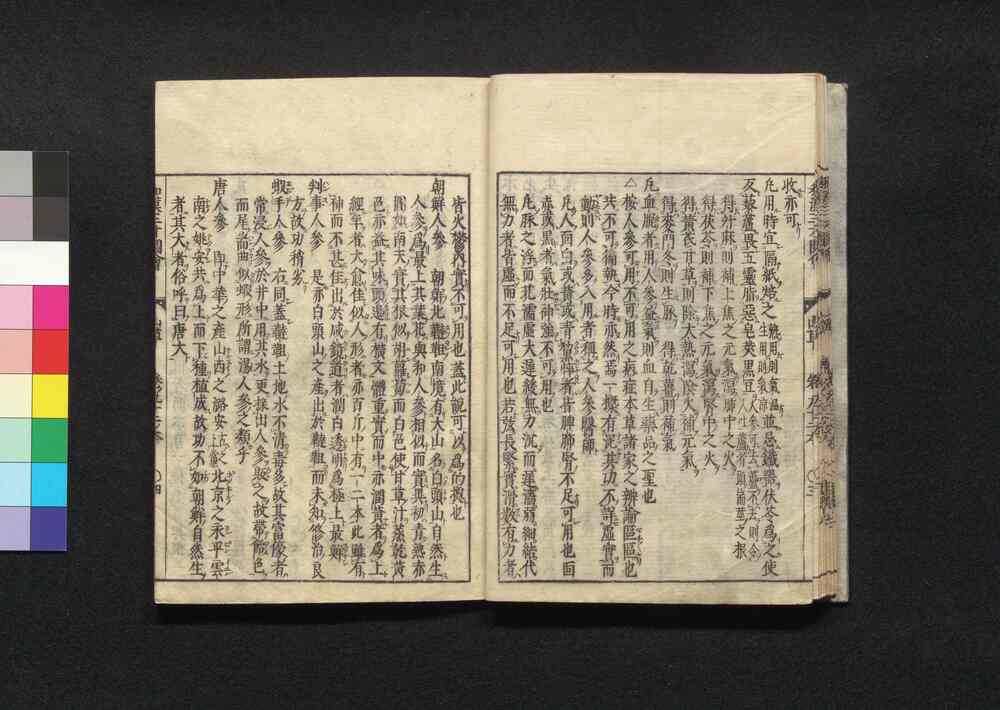 収亦可
凡用時宜隔紙焙之熟用則氣溫生用則氣涼並忌鐵器伏苓爲之使
反藜蘆畏五靈脂惡皂莢黒豆
得升麻則補上焦之元氣瀉肺中之火
得茯苓則補下焦之元氣瀉腎中之火
得黃茋甘草則除大熱瀉陰火補元氣
得麥門冬則生脉 得乾薑則補氣
凡血脫者用人參益氣則血自生藥品之聖也
△按人參可用不可用之病症本草諸家之辨論區區也
共不可偏執今時亦然
敵則人參多入用者稱之人參醫師
凡人面白或黃或青黧悴者皆脾肺腎不足可用也面
赤或黒者氣壯神強不可用也
凡脉之浮而芤濡虛大遲緩無力沉而遲濇弱細結代
無力者皆虛而不足可用也若弦長緊實滑數有力者
皆火鬱內實不可用也蓋此說可以爲的據也
朝鮮人參 朝鮮北韃靼南境有大山名白頭山自然生
人參爲最上其葉花與和人參相似而實其初青熟亦
圓如南天實其根似胡蘿蔔而白色使甘草汁蒸乾黃
色亦益其味頭邊有橫文體重實而中亦潤實者爲上
經年者大愈佳似人形者亦百斤中有一二本此雖有
神而不甚佳出於咸鏡道者潤白透明爲極上最難
判事人參 是亦白頭山之產出於韃靼而未知修治良
方故功稍劣
蝦手人參 右同蓋韃靼土地水不清毒多故其富豪者
常浸人參於井中用其水更採出人參煑之故帶𩝐色
而尾首曲似蝦形所謂湯人參之類乎
唐人參 即中華之產山西之潞安北京之永平雲
南之姚安共爲上而下種植成故功不如朝鮮自然生
者其大者俗呼曰唐大